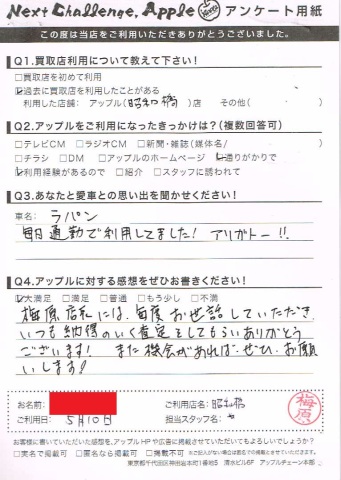 Next Challenge, Apple アンケート用紙
この度は当店をご利用いただきありがとうございました。
Q1.買取店利用について教えて下さい!
□買取店を初めて利用
☑過去に買取店を利用したことがある
利用した店舗: アップル(昭和橋)店 その他( )
Q2.アップルをご利用になったきっかけは?(複数回答可)
□テレビCM □ラジオCM □新聞・雑誌(媒体名/ )
□チラシ □DM □アップルのホームページ ☑通りがかりで
☑利用経験があるので □紹介 □スタッフに誘われて
Q3.あなたと愛車との思い出を聞かせください!
車名: ラパン
毎日通勤で利用してました! アリガトー!!
Q4.アップルに対する感想をぜひお書きください!
☑大満足 □満足 □普通 □もう少し □不満
梅原店長には、毎度お世話していただき、
いつも納得のいく査定をしてもらいありがとう
ございます! また機会があれば、ぜひ、お願
いします!
お名前: ご利用店名: 昭和橋
ご利用日: 5月10日 担当スタッフ名:
梅原
お客様に書いていただいた感想を、アップルHPや広告に掲載させていただいてもよろしいでしょうか?
□実名で掲載可 □匿名なら掲載可 □掲載不可 ※ご記入がない場合は匿名での掲載とさせていただきます。
東京都千代田区神田岩本町1番地5 清水ビル6F アップルチェーン本部